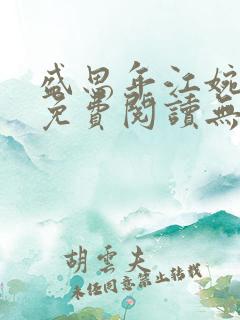 盛思年江婉
免費閱讀無
胡雲夫
未经同意禁止转载